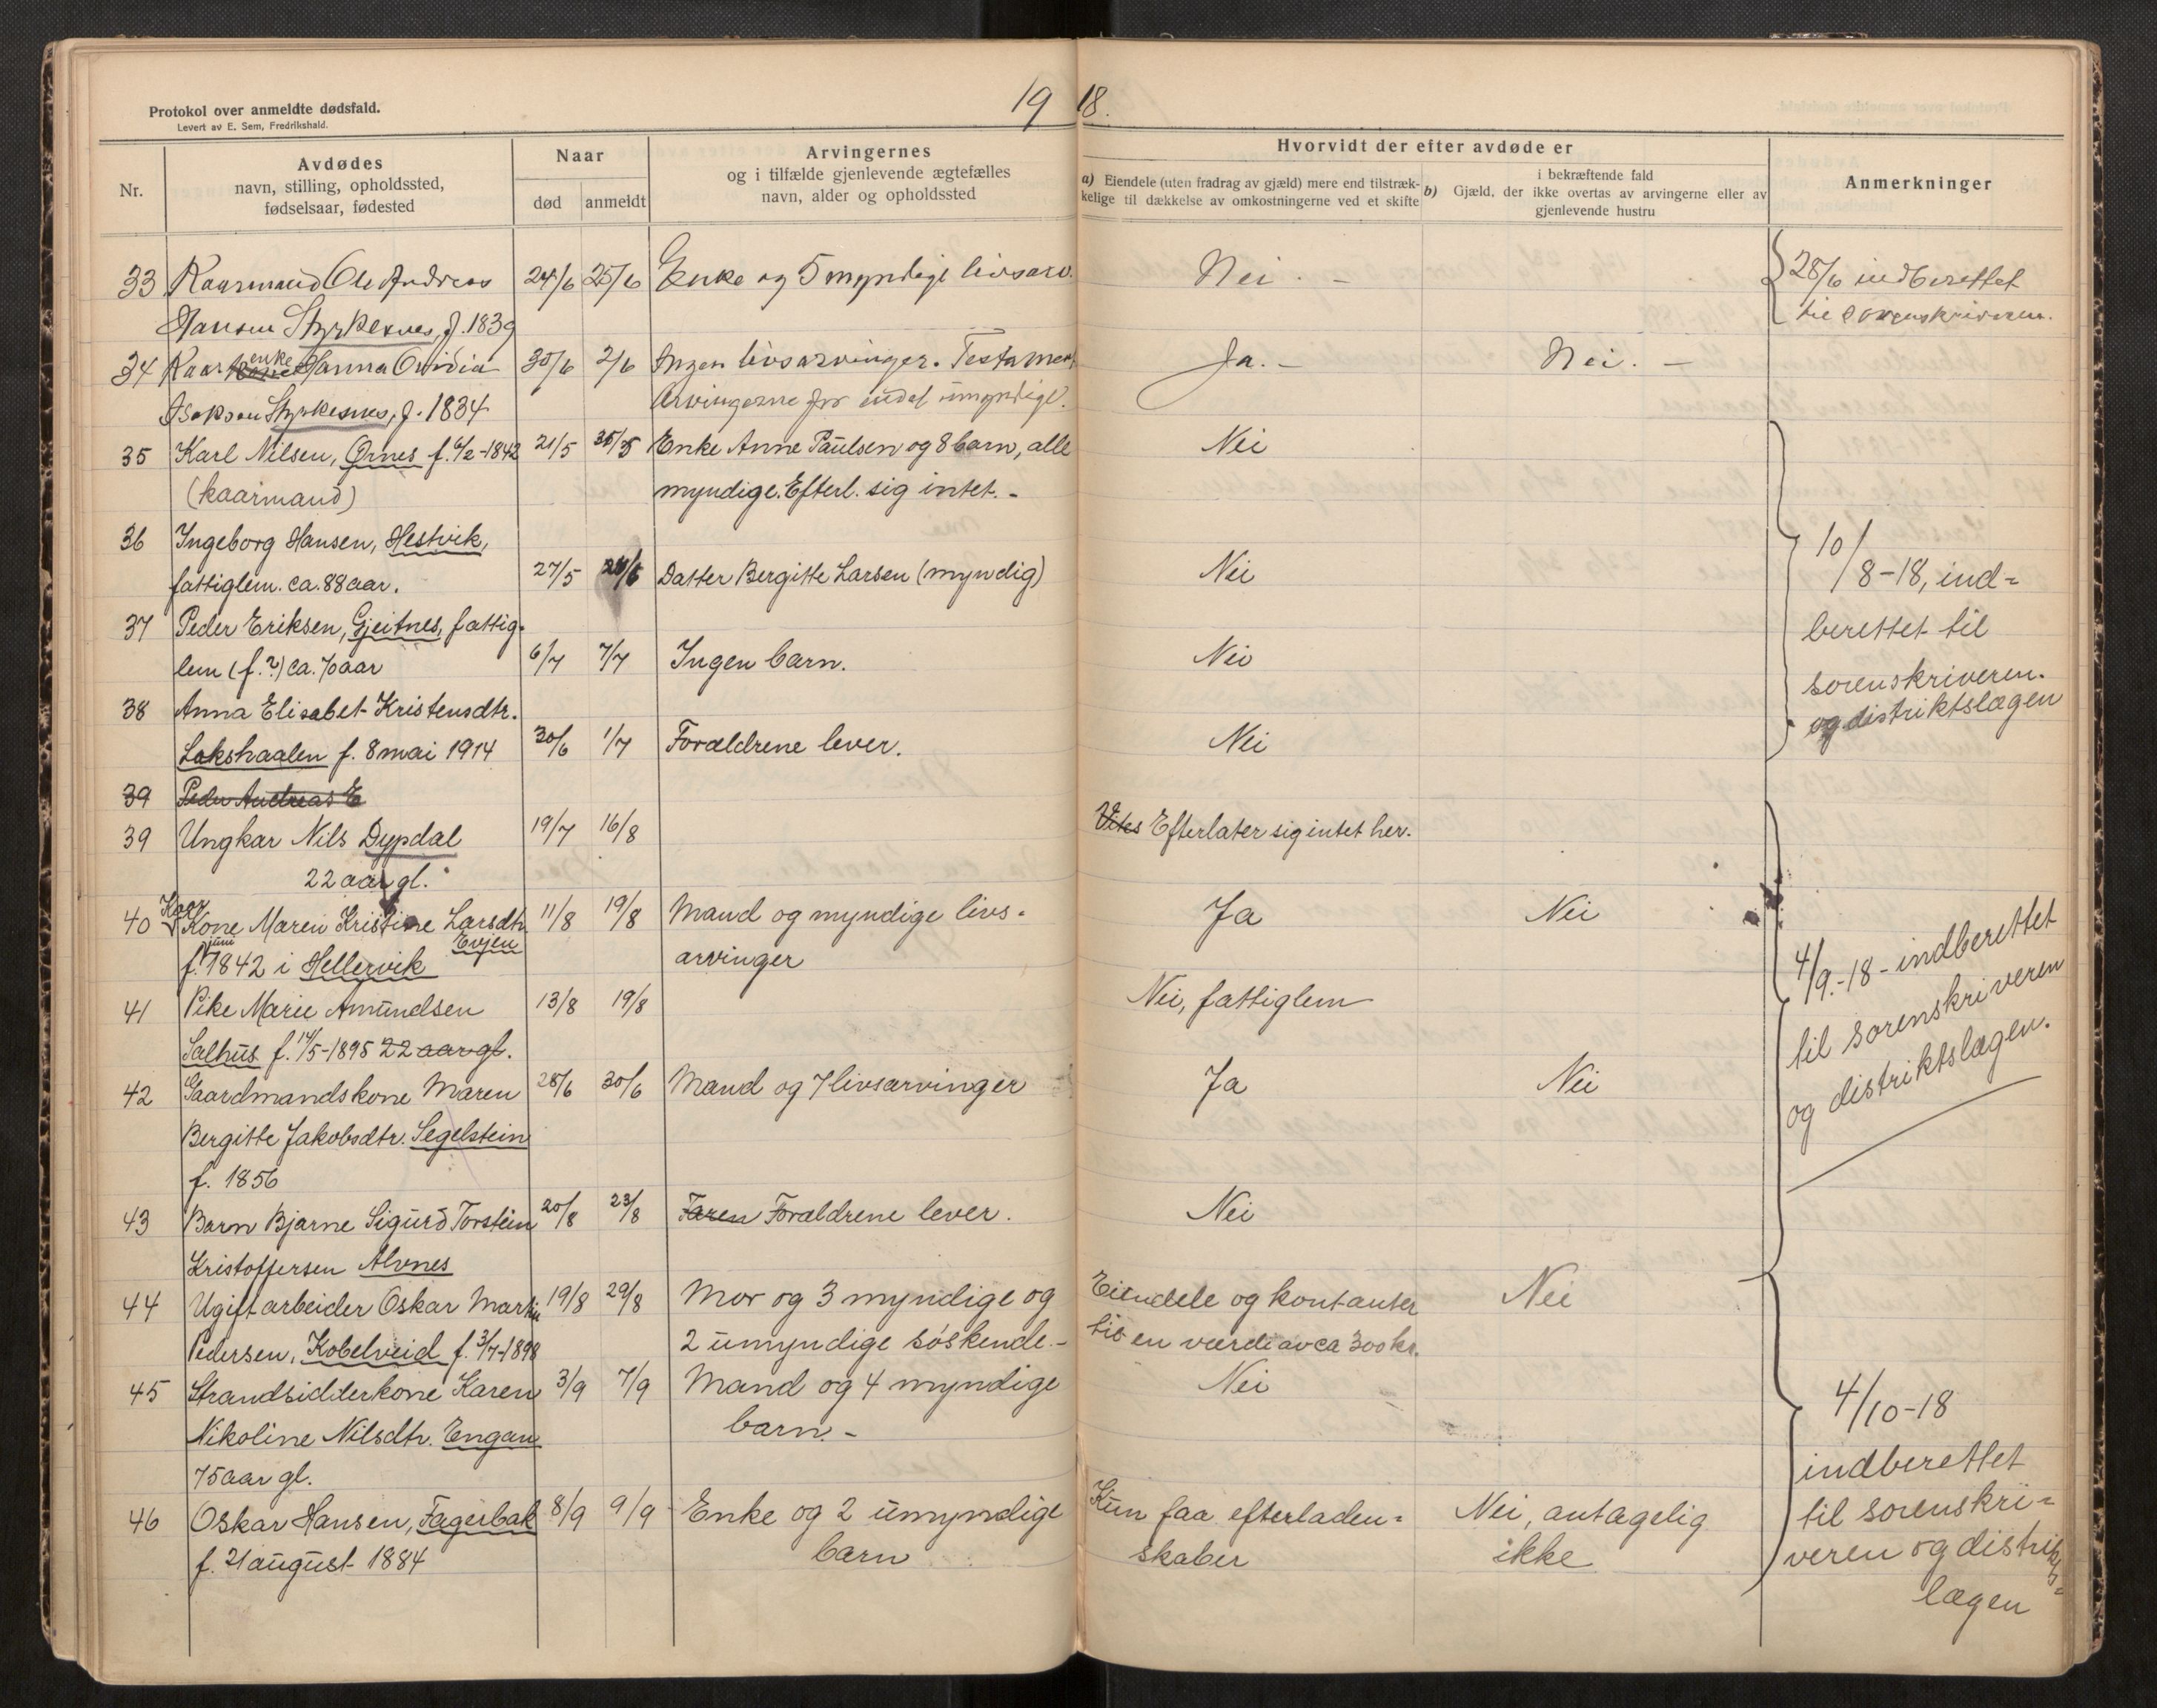 19 18.
Protokol over anmeldte dødsfald.
Levert av E. Sem, Fredrikshald.
Nr.
Avdødes
navn, stilling, opholdssted,
fødselsaar, fødested
Naar
død anmeldt
Arvingernes
og i tilfælde gjenlevende ægtefælles
navn, alder og opholdssted
Hvorvidt der efter avdøde er
a) Eiendele (uten fradrag av gjæld) mere end tilstræk-
kelige til dækkelse av omkostningerne ved et skifte
i bekræftende fald
b) Gjæld, der ikke overtas av arvingerne eller av
gjenlevende hustru
Anmerkninger
33 Kaarmand Ole Andreas 24/6 25/6 Enke og 5 myndige livsarv. Nei. -
Hansen Styrkesnes, f. 1839
28/6 indberettet
til sorenskriveren.
34 Kaarkone enke Hanna Ovidia 30/6 2/6 Ingen livsarvinger. Testament Ja. - Nei. -
Isaksen Styrkesnes, f. 1834 Arvingerne for endel umyndige.
35 Karl Nilsen, Ørnes f. 6/2-1842 21/5 Enke Anne Paulsen og 8 barn, alle Nei
(kaarmand) myndige. Efterl. sig intet. -
36 Ingeborg Hansen, Hestvik,
fattiglem. ca. 88 aar. 27/5 Datter Bergitte Larsen (myndig) Nei
37 Peder Eriksen, Gjeitnes, fattig-
lem (f. ?) ca. 70 aar 6/7 7/7 Ingen barn. Nei
38 Anna Elisabet Kristensdtr.
Lakshaalen f. 8 mai 1914 30/6 1/7 Forældrene lever. Nei
10/8-18, ind-
berettet til
sorenskriveren.
og distriktslægen
39 Peder Andreas E
39 Ungkar Nils Dypdal 19/7 16/8 Vites Efterlater sig intet her.
22 aar gl.
40 Kaar Kone Maren Kristine Larsdtr. 11/8 19/8 Mand og myndige livs- Ja Nei
Evjen
f. juni 1842 i Hellervik arvinger
41 Pike Marie Amundsen 13/8 19/8 Nei, fattiglem
Salhus f. 14/5-1895 22 aar gl.
42 Gaardmandskone Maren 28/6 30/6 Mand og 7 livsarvinger Ja Nei
Bergitte Jakobsdtr. Segelstein
f. 1856
43 Barn Bjarne Sigurd Torstein 20/8 23/8 Faren Forældrene lever. Nei
Kristoffersen Alvnes
4/9.-18 - indberettet
til sorenskriveren
og distriktslægen.
44 Ugift arbeider Oskar Martin 19/8 29/8 Mor og 3 myndige og Eiendele og kontanter Nei
Pedersen, Kobelveid f. 3/7-1898 2 umyndige søskende. - til en værdi av ca 300 kr.
45 Strandsidderkone Karen 3/9 7/9 Mand og 4 myndige Nei
Nikoline Nilsdtr. Engan barn. -
75 aar gl.
46 Oskar Hansen, Fagerbak 8/9 9/9 Enke og 2 umyndige Kun faa efterladen- Nei, antagelig
f. 21 august 1884 barn skaber ikke
4/10-18
indberettet
til sorenskri-
veren og distrikts-
lægen